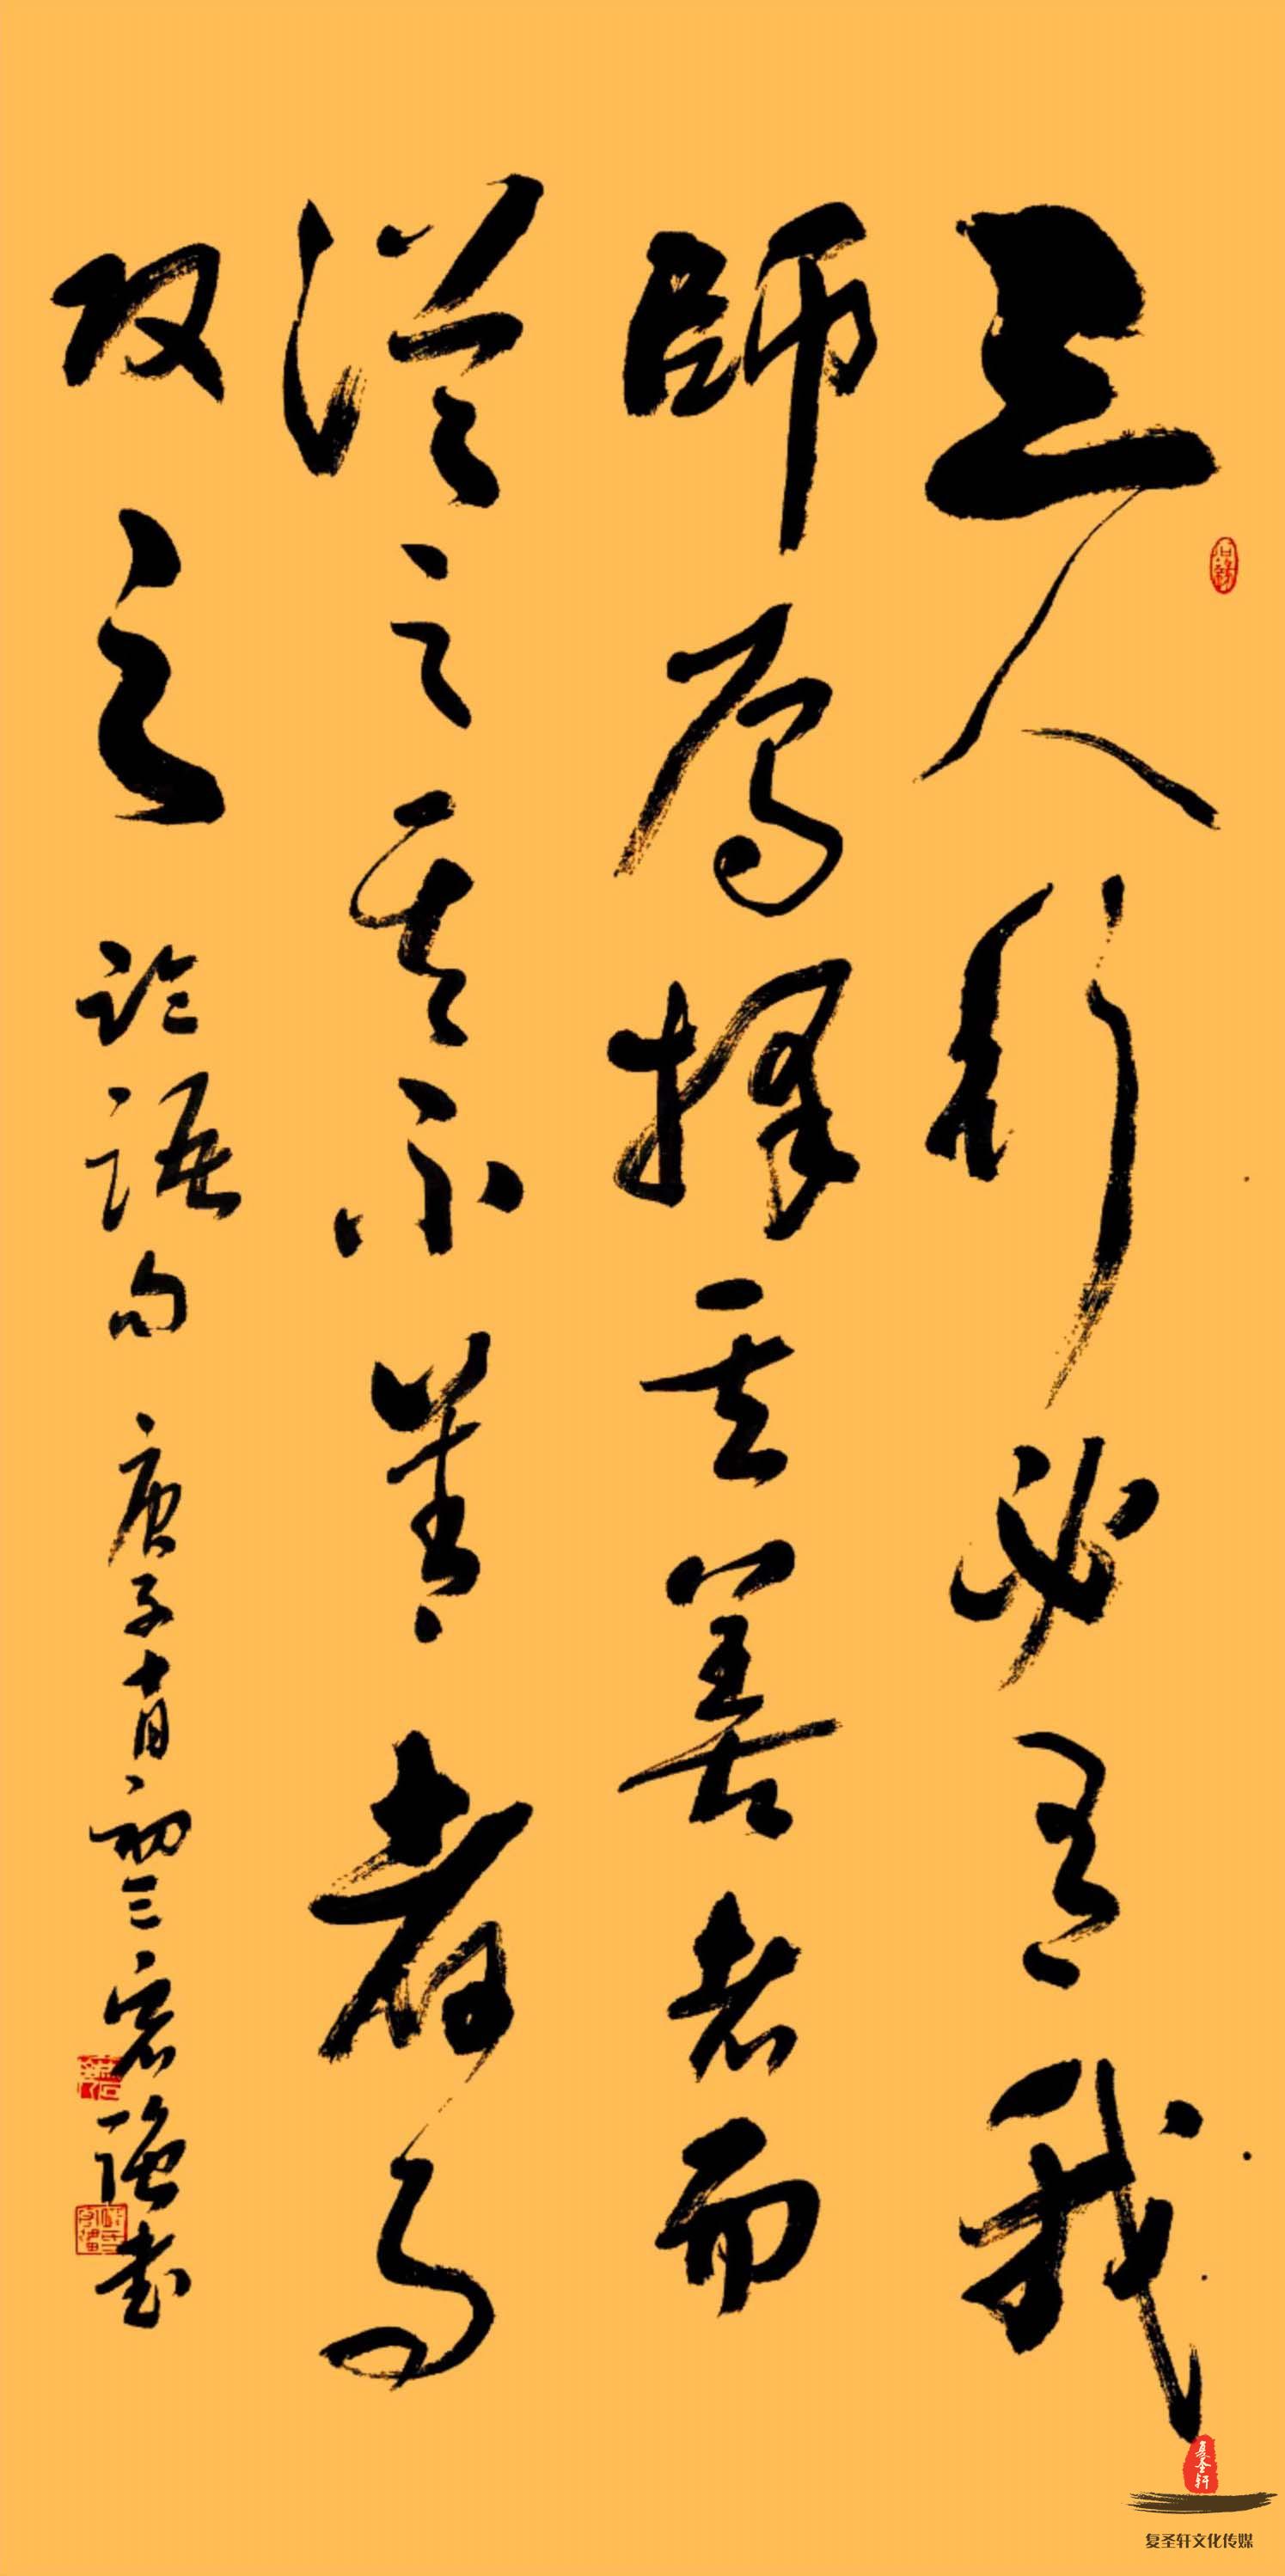 三人行必有我
師焉擇其善者而
從之其不善者焉
改之 論語句 庚子十月初三宏強書
复圣轩
复圣轩文化传媒